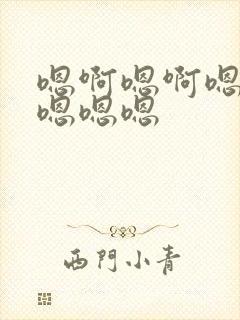 嗯啊嗯啊嗯
嗯嗯嗯
西門小青